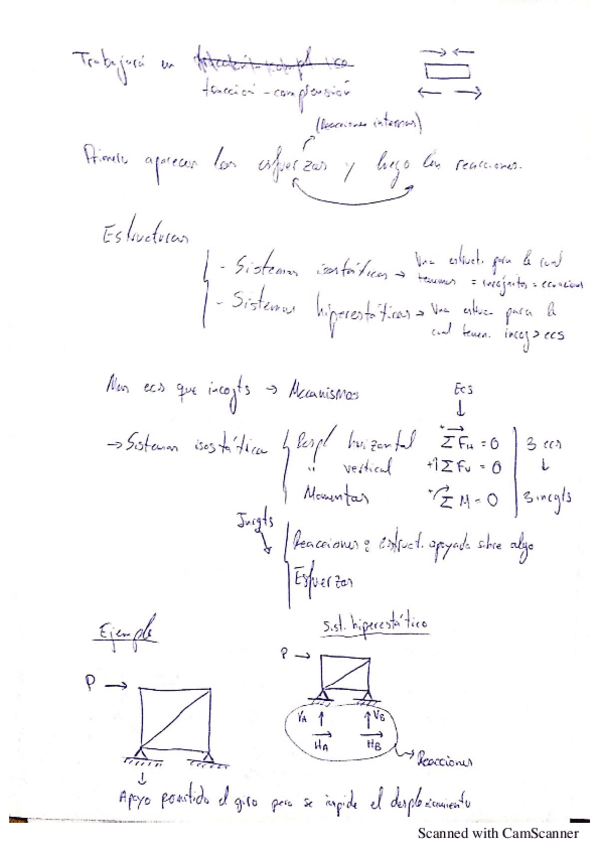 Trabajará un
tracción - compresión
(Reacciones internas)
Primero aparecen los esfuerzos y luego las reacciones.
Estructuras
- Sistemas isostáticos → Una estruct. para la cual
tenemos = incógnitas = ecuaciones
- Sistemas hiperestáticos → Una estruc. para la
cual tenem. incog > ecs
Mas ecs que incogts → Mecanismos
Ecs
→ Sistemas isostática
horizontal + ΣFH = 0
3 ecs
" vertical + ↑ ΣFV = 0
↓
Momentos + Σ M = 0
3 incgts
Incgts
Reacciones estruct. apoyada sobre algo
Esfuerzos
Ejemplo
sist. hiperestático
P →
P →
VA ↑ ↑ VB
HA HB
→ Reacciones
Apoyo permitido el giro pero se impide el desplazamiento
Scanned with CamScanner